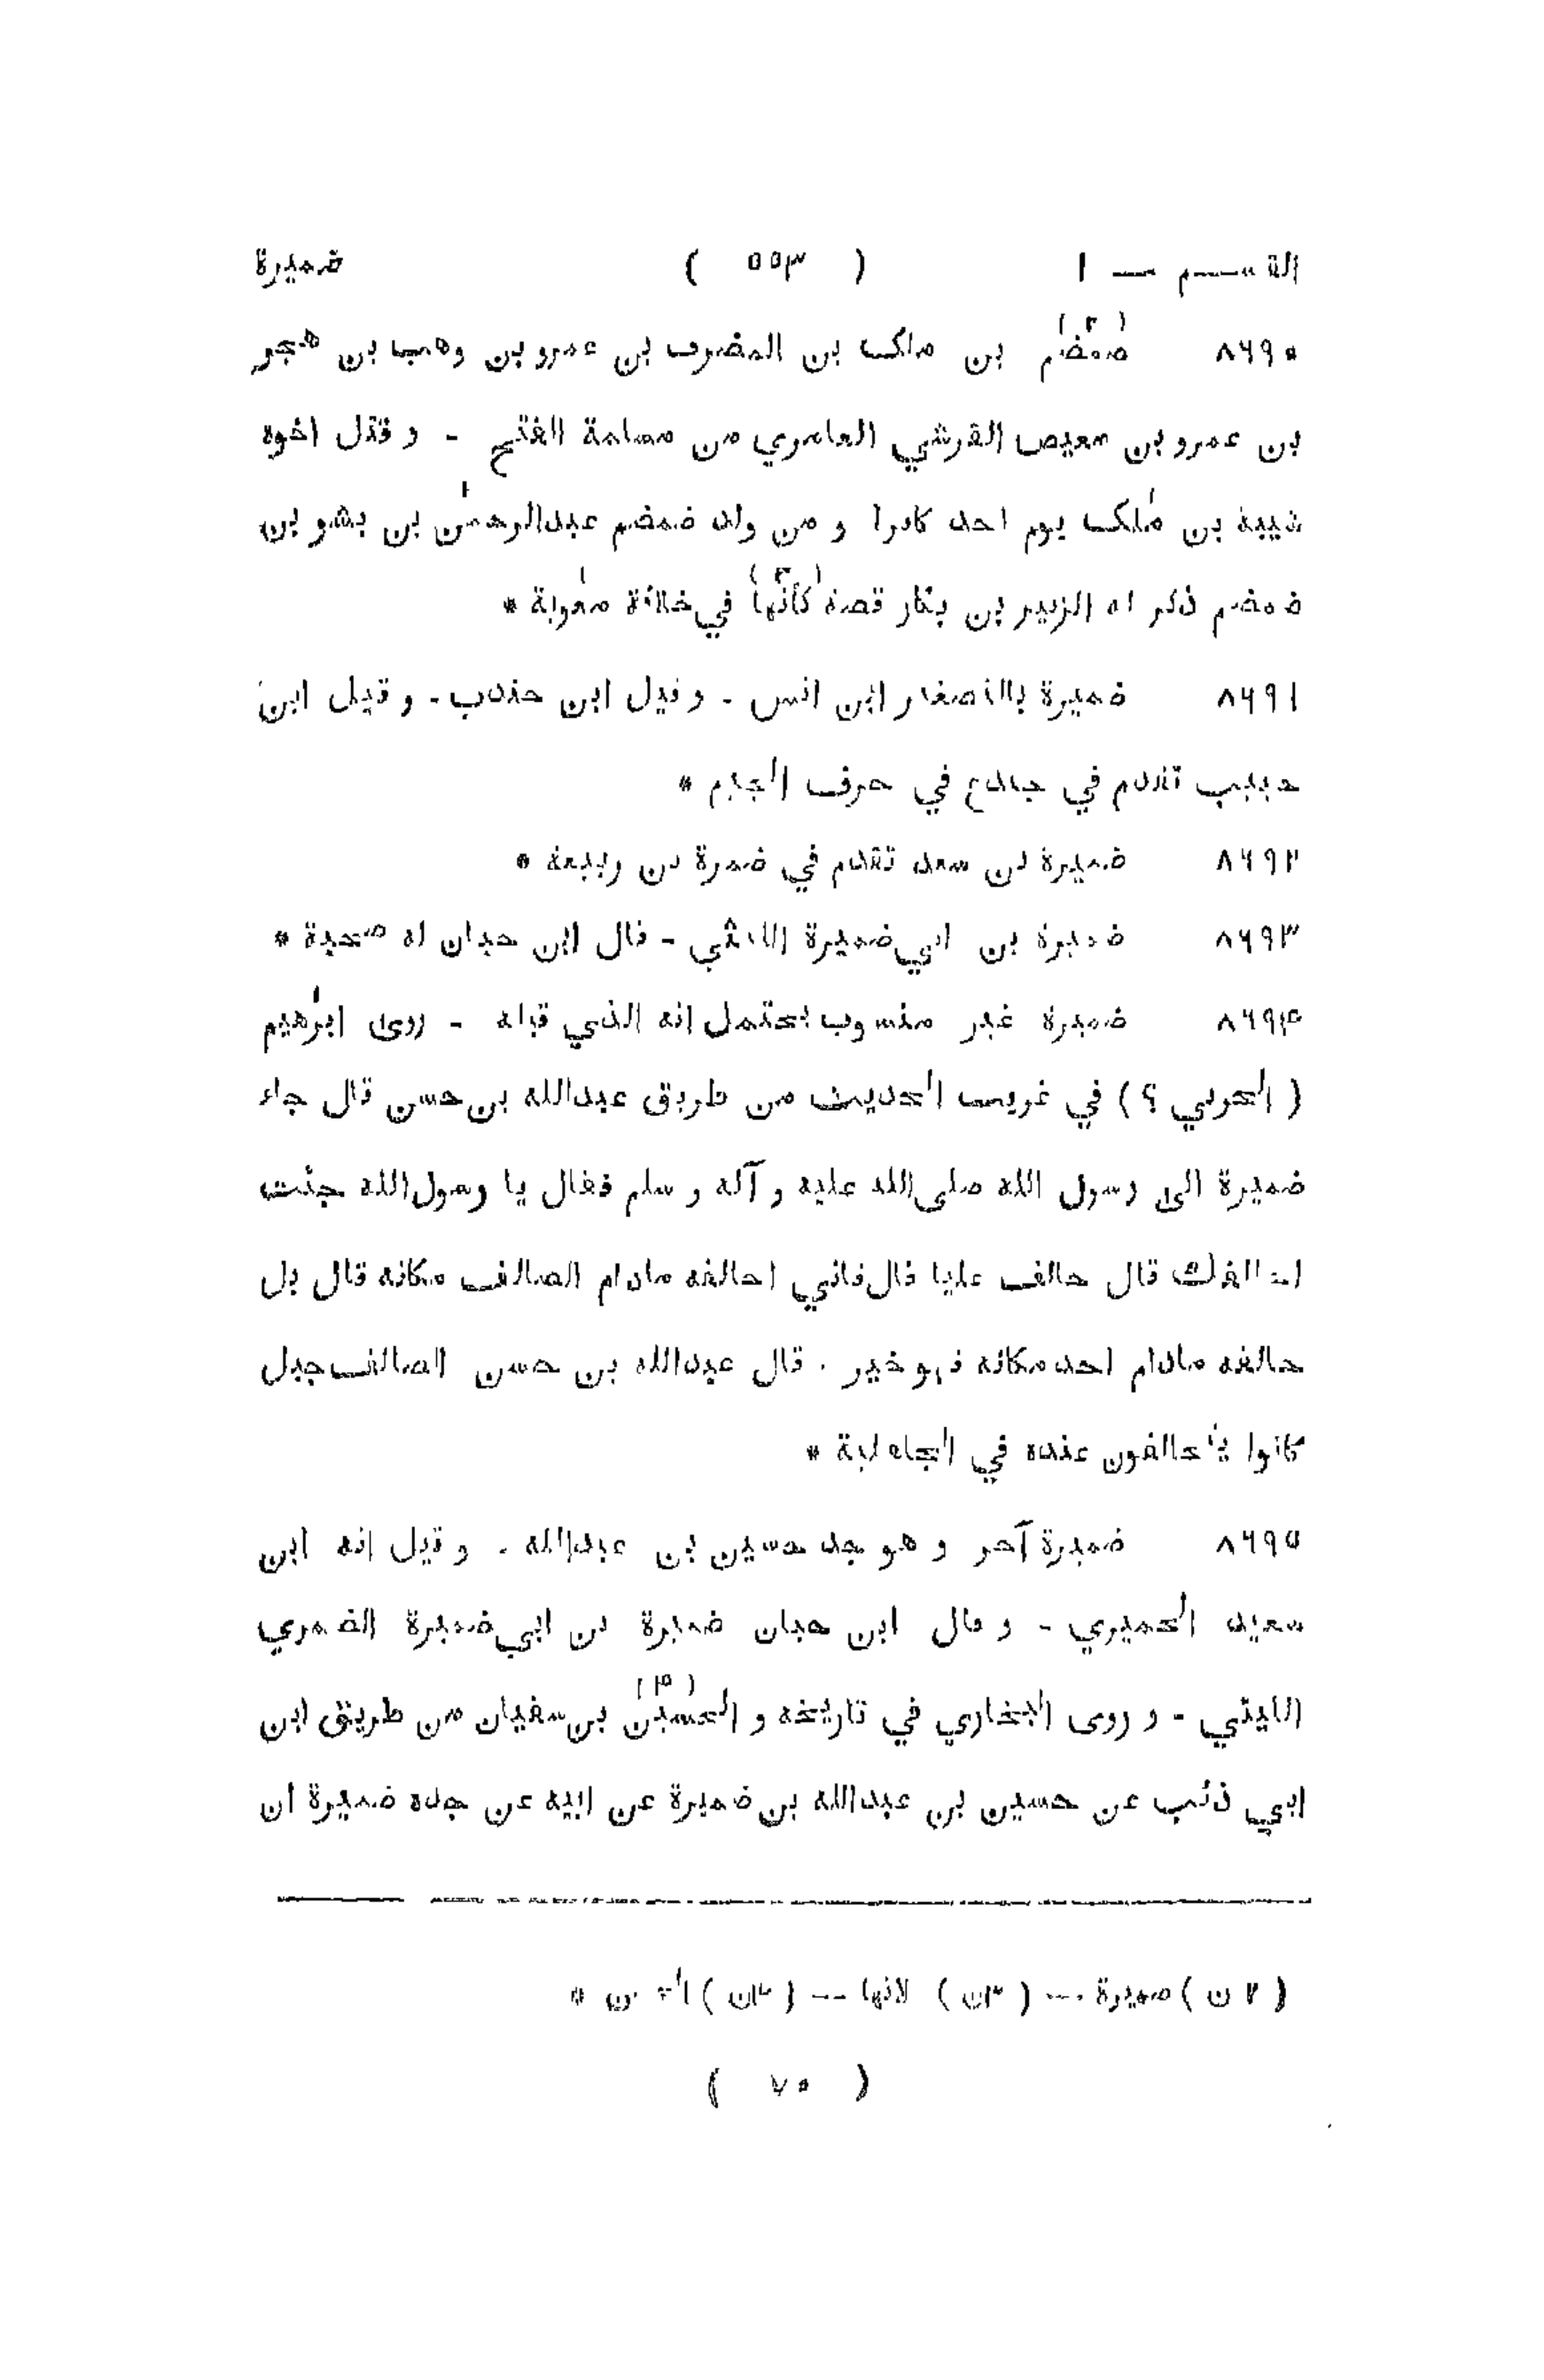 القسم — ١ ( ٥٥٣ ) ضميرة
٨٦٩٠ ضمضم (٢) بن ملك بن المضرب بن عمرو بن وهب بن حجر
بن عمرو بن معيص القرشي العامري من مسلمة الفتح - و قتل اخوه
شيبة بن مٰلك يوم احد كافرا و من ولد ضمضم عبدالرحمٰن بن بشر بن
ضمضم ذكر له الزبير بن بكار قصة كانها (٣) في خلافة معٰوية *
٨٦٩١ ضميرة بالتصغير ابن انس - و قيل ابن جندب - و قيل ابن
حبيب تقدم في جندع في حرف الجيم *
٨٦٩٢ ضميرة بن سعد تقدم في ضمرة بن ربيعة *
٨٦٩٣ ضميرة بن ابي ضميرة الليثي - قال ابن حبان له صحبة *
٨٦٩٤ ضميرة غير منسوب يحتمل انه الذي قبله - روى ابرٰهيم
( الحربي ؟ ) في غريب الحديث من طريق عبدالله بن حسن قال جاء
ضميرة الى رسول الله صلى الله عليه و آله و سلم فقال يا رسول الله جئت
احالفك قال حالف عليا قال فاني احالفه مادام الصالف مكانه قال بل
حالفه مادام احد مكانه فهو خير . قال عبدالله بن حسن الصالف جبل
كانوا يتحالفون عنده في الجاهلية *
٨٦٩٥ ضميرة آخر و هو جد حسين بن عبدالله . و قيل انه ابن
سعيد الحميري - و قال ابن حبان ضميرة بن ابي ضميرة الضمري
الليثي - و روى البخاري في تاريخه و الحسين (٤) بن سفيان من طريق ابن
ابي ذئب عن حسين بن عبدالله بن ضميرة عن ابيه عن جده ضميرة ان
( ٢ ن ) صميرة — ( ٣ن ) لانها — ( ٤ن )
( ٧٠ )